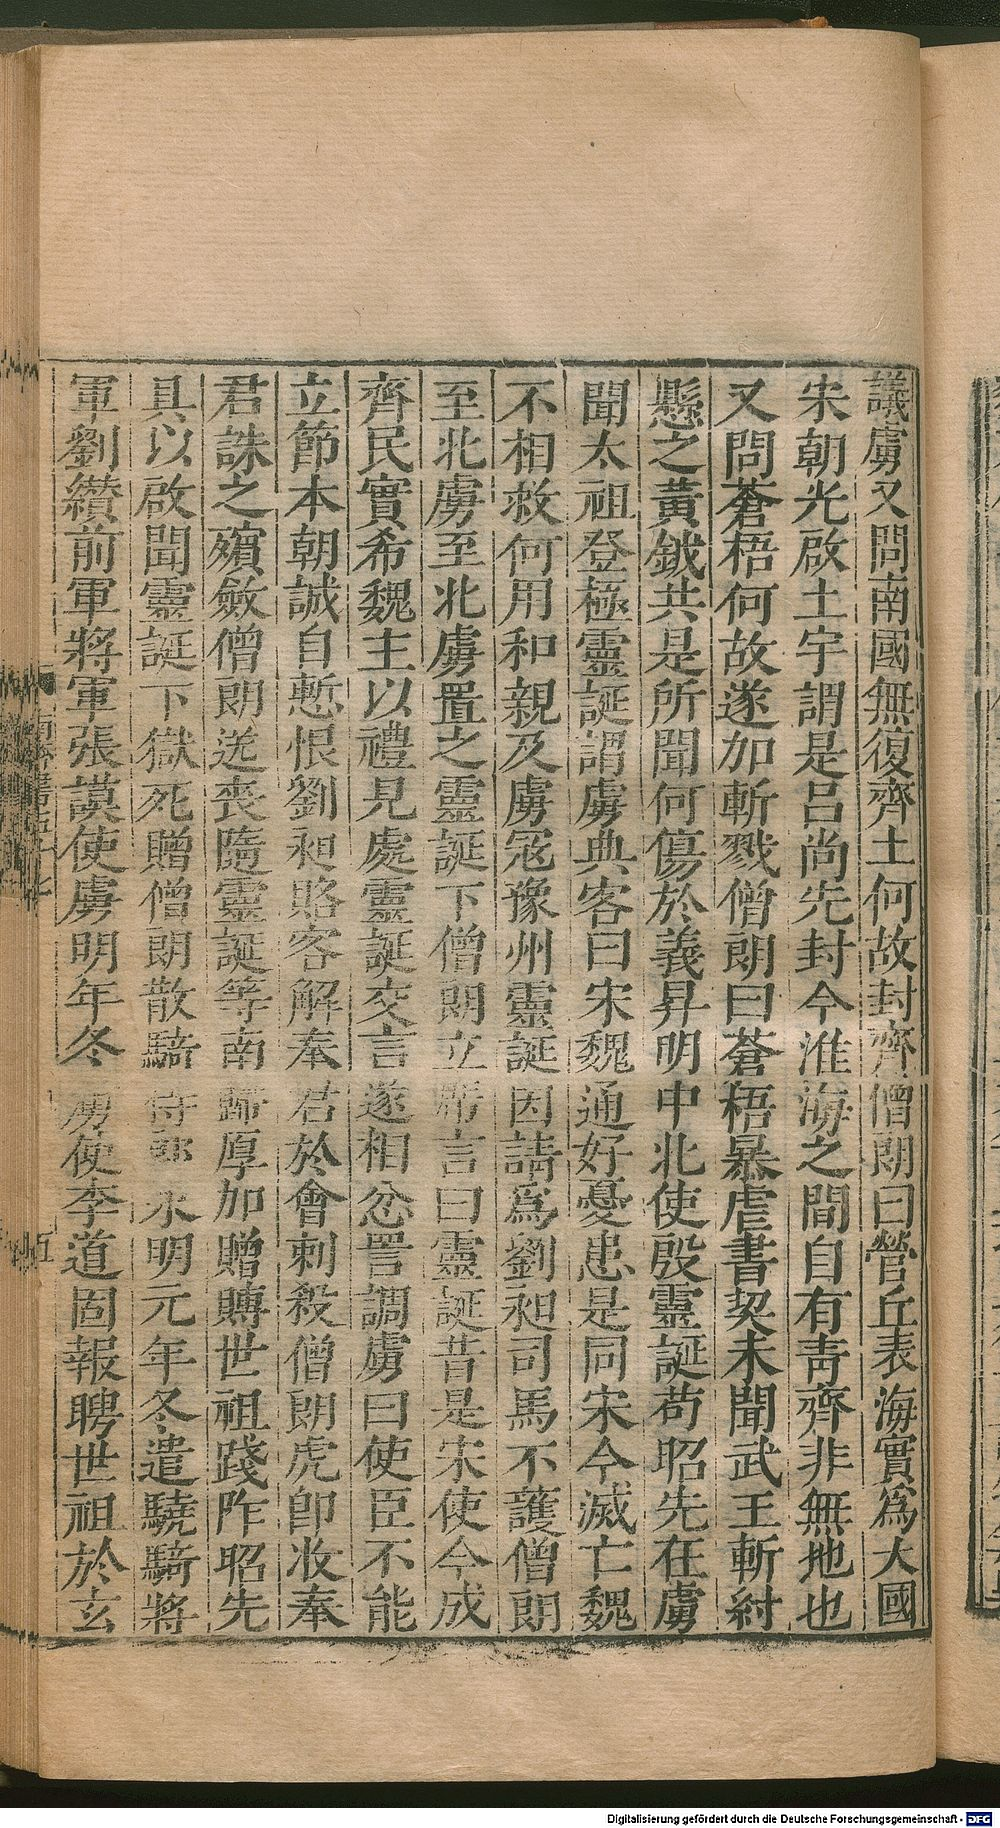 議虜又問南國無復齊土何故封齊僧朗曰營丘表海實爲大國
宋朝光啟土宇謂是呂尚先封今淮海之間自有靑齊非無地也
又問蒼梧何故遂加斬戮僧朗曰蒼梧暴虐書契未聞武王斬紂
懸之黃鉞共是所聞何傷於義昇明中北使殷靈誕苟昭先在虜
聞太祖登極靈誕謂虜典客曰宋魏通好憂患是同宋今滅亡魏
不相救何用和親及虜冦豫州靈誕因請爲劉昶司馬不護僧朗
至北虜至北虜置之靈誕下僧朗立席言曰靈誕昔是宋使今成
齊民實希魏主以禮見處靈誕交言遂相忿詈調虜曰使臣不能
立節本朝誠自慙恨劉昶賂客解奉君於會刺殺僧朗虎卽收奉
君誅之殯斂僧朗送喪隨靈誕等南歸厚加贈賻世祖踐阼昭先
具以啟聞靈誕下獄死贈僧朗散騎侍郎永明元年冬遣驍騎將
軍劉纘前軍將軍張謨使虜明年冬虜使李道固報聘世祖於玄
Digitalisierung gefördert durch die Deutsche Forschungsgemeinschaft - DFG